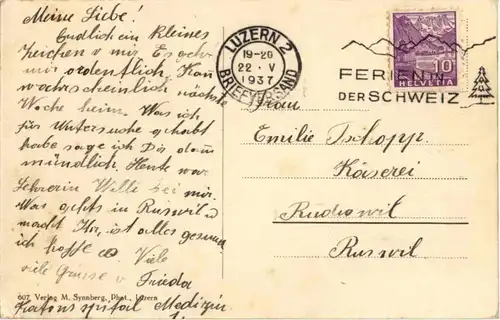 Meine Liebe!
Endlich ein kleines
Zeichen v mir. Es geht
mir ordentlich. Kan
wahrscheinlich nächste
Woche heim. Was ich
für Untersuche gehabt
habe sage ich Dir dann
mündlich. Heute war
Lehrerin Willi bei mir.
Was gehts in Ruswil u
macht Ihr, ist alles gesund
ich hoffe es. Viele
viele Grüsse v Frieda
607 Verlag M. Synnberg, Phot., Luzern
Kantonsspital Medizin.
LUZERN 2
19-20
22 · V
1937
BRIEFVERSAND
FERIEN IN
DER SCHWEIZ
10
HELVETIA
Frau
Emilie Tschopp.
Käserei
Rüdiswil
Ruswil